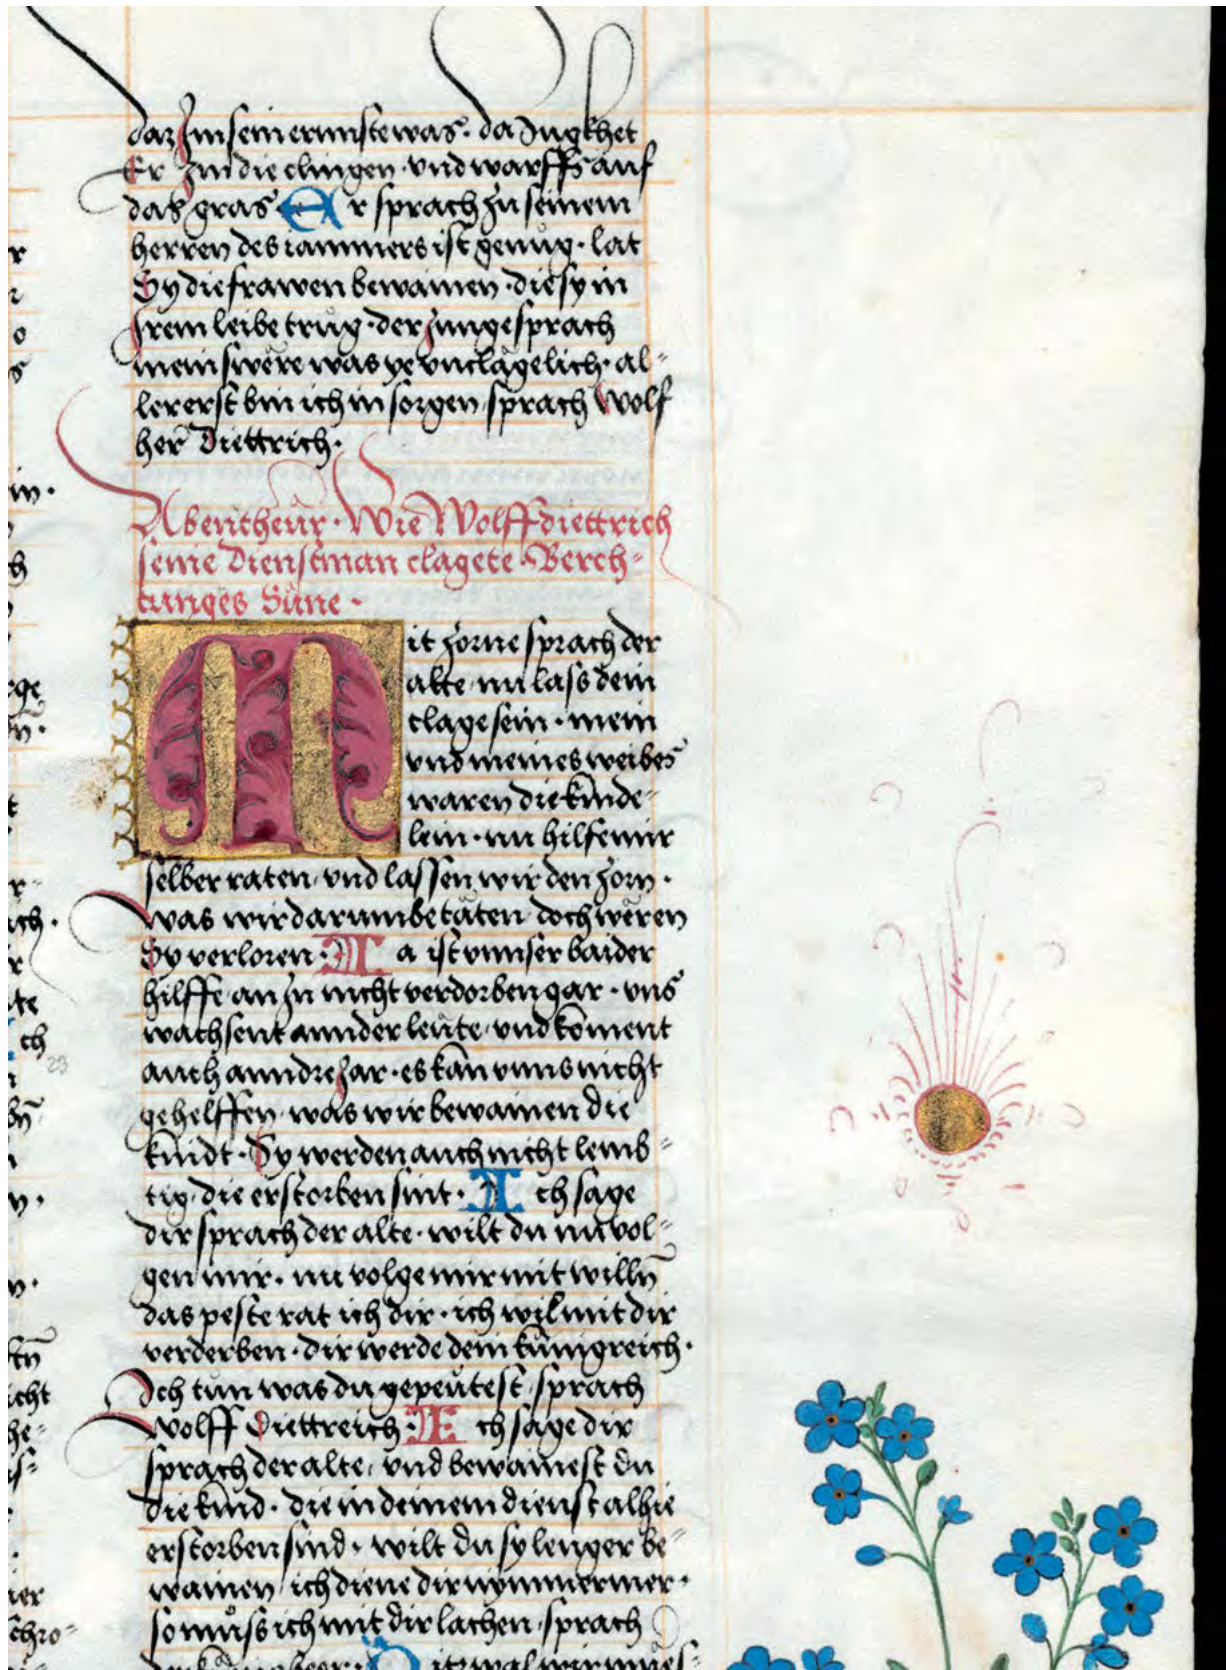 daz Im sein ermiste was. da zugkhet
Er Im die clingen. vnd warffs auf
das gras Er sprach zu seinem
herren des iammers ist genůg. lat
Sy die frawen bewainen. die sy in
Irem leibe trůg. der Junge sprach
mein swëre was ye vnclagelich. al-
lererst bin ich in sorgen, sprach Wolf
her Diettrich.
Abentheur. Wie Wolffdiettrich
seine Dienstman clagete. Berch-
tunges Süne.
Mit zorne sprach der
alte. nu lass dein
clage sein. mein
vnd meines weibes
waren die kinde-
lein. nu hilfe mir
selber raten, vnd lassen wir den zorn.
was wir darumbe täten. doch wëren
Sy verloren. Ia ist vnnser baider
hilffe, an In nicht verdorben gar. vns
wachsent annder leüte, vnd koment
auch anndre Jar. es kan vnns nicht
gehelffen, was wir bewainen die
kindt. Sy werden auch nicht lemb-
tig, die erstorben sint. Ich sage
dir sprach der alte. wilt du nu vol-
gen mir. nu volge mir mit willn̄
das peste rat ich dir. ich wil mit dir
verderben. dir werde dein künigreich.
Ich tun was du gepeütest, sprach
wolff Diettreich. Ich sage dir
sprach der alte, vnd bewainest du
die kind. die in deinem dienst alhie
erstorben sind. wilt du sy lenger be-
wainen, ich diene dir nymmermer.
so můss ich mit dir lachen, sprach